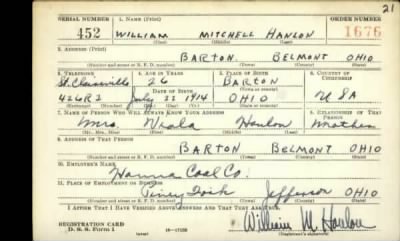 21
SERIAL NUMBER 1. NAME (Print) ORDER NUMBER
452 WILLIAM MITCHELL HANLON 1676
(First) (Middle) (Last)
2. ADDRESS (Print)
BARTON BELMONT OHIO
(Number and street or R. F. D. number) (Town) (County) (State)
3. TELEPHONE 4. AGE IN YEARS 5. PLACE OF BIRTH 6. COUNTRY OF CITIZENSHIP
St. Clairsville 26 BARTON
DATE OF BIRTH
426R2 July 22 1914 OHIO USA
(Exchange) (Number) (Mo.) (Day) (Yr.) (State or country)
7. NAME OF PERSON WHO WILL ALWAYS KNOW YOUR ADDRESS 8. RELATIONSHIP OF THAT PERSON
Mrs. Hanlon Mother
(Mr., Mrs., Miss) (First) (Middle) (Last)
9. ADDRESS OF THAT PERSON
BARTON BELMONT OHIO
(Number and street or R. F. D. number) (Town) (County) (State)
10. EMPLOYER'S NAME
Hanna Coal Co.
11. PLACE OF EMPLOYMENT OR BUSINESS
Piney Fork Jefferson OHIO
(Number and street or R. F. D. number) (Town) (County) (State)
I AFFIRM THAT I HAVE VERIFIED ABOVE ANSWERS AND THAT THEY ARE TRUE.
REGISTRATION CARD
D. S. S. Form 1 William M. Hanlon
(Registrant's signature)